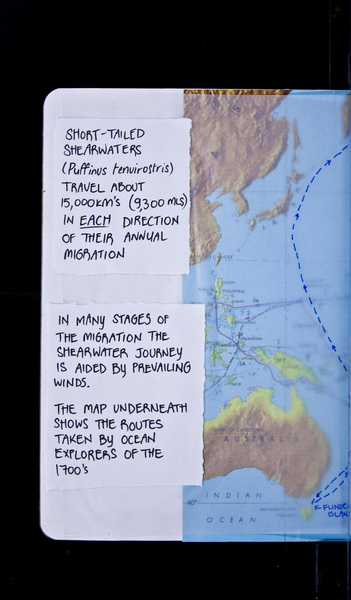 SHORT-TAILED
SHEARWATERS
(Puffinus tenuirostris)
TRAVEL ABOUT
15,000KM'S (9,300 MLS)
IN EACH DIRECTION
OF THEIR ANNUAL
MIGRATION
IN MANY STAGES OF
THE MIGRATION THE
SHEARWATER JOURNEY
IS AIDED BY PREVAILING
WINDS.
THE MAP UNDERNEATH
SHOWS THE ROUTES
TAKEN BY OCEAN
EXPLORERS OF THE
1700'S
AUSTRALIA
INDIAN
40°
OCEAN